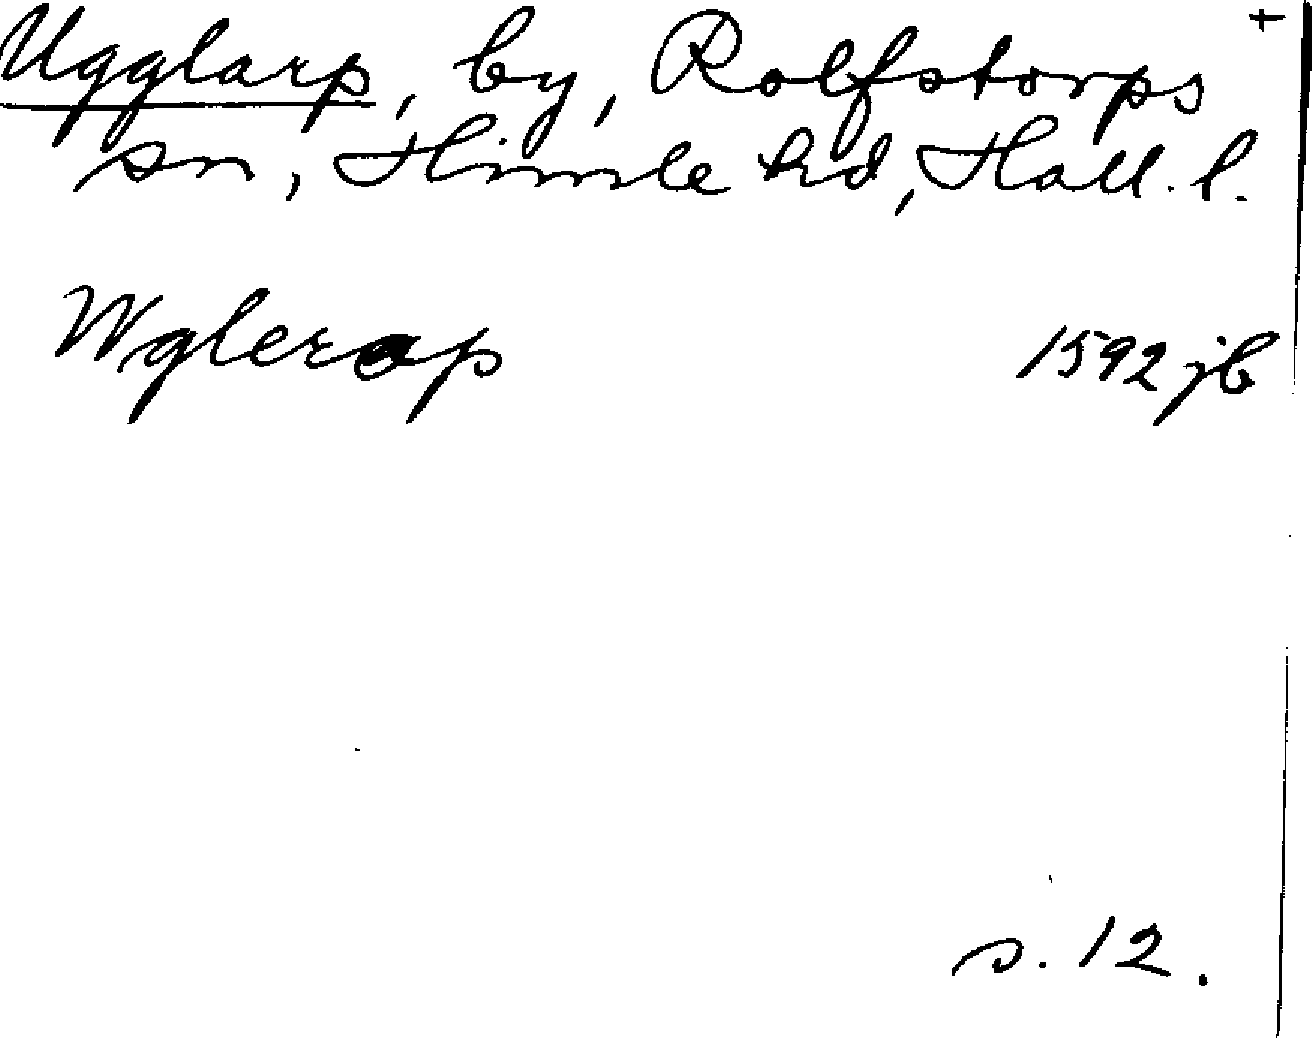 Ugglarp, by, Rolfstorps +
sn, Himle hd, Hall. l.
Wglerap 1592 jb
s. 12.